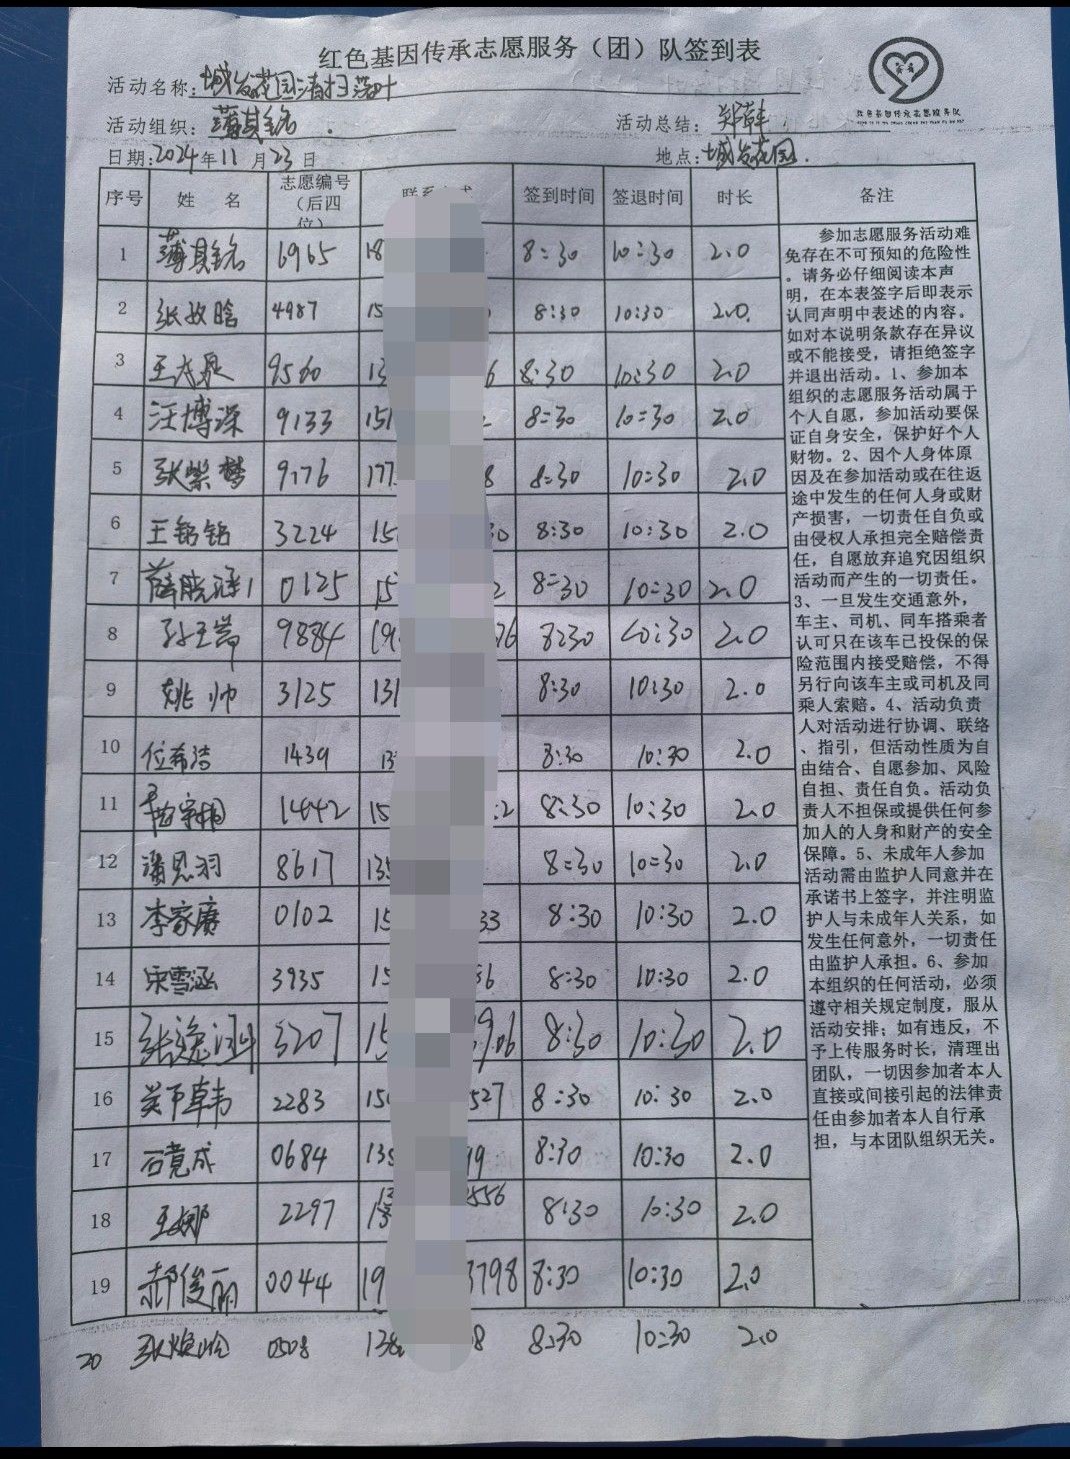 红色基因传承志愿服务（团）队签到表
活动名称：城发花园清扫落叶
活动组织：薄其铭
活动总结：郑韩
日期：2024年11月23日
地点：城发花园.
序号 姓 名 志愿编号（后四位） 联系方式 签到时间 签退时间 时长 备注
1 薄其铭 6965 18 8:30 10:30 2.0
2 张 晗 4987 15 8:30 10:30 2.0
3 9560 13 6 8:30 10:30 2.0
4 汪博深 9133 151 8:30 10:30 2.0
5 张紫梦 9776 177 8 8:30 10:30 2.0
6 王铭铭 3224 15 30 8:30 10:30 2.0
7 薛晓涵 0125 15 2 8:30 10:30 2.0
8 孙 9884 19 76 8:30 10:30 2.0
9 姚帅 3125 131 8:30 10:30 2.0
10 位希浩 1439 13 8:30 10:30 2.0
11 1442 15 2 8:30 10:30 2.0
12 潘思羽 8617 135 8:30 10:30 2.0
13 李家赓 0102 15 33 8:30 10:30 2.0
14 宋雪涵 3935 15 86 8:30 10:30 2.0
15 张逸 5207 15 906 8:30 10:30 2.0
16 韩 2283 150 527 8:30 10:30 2.0
17 石竟成 0684 135 99 8:30 10:30 2.0
18 王娜 2297 13 556 8:30 10:30 2.0
19 郝俊丽 0044 19 3798 8:30 10:30 2.0
20 张焕 0508 138 08 8:30 10:30 2.0
参加志愿服务活动难
免存在不可预知的危险性
。请务必仔细阅读本声
明，在本表签字后即表示
认同声明中表述的内容。
如对本说明条款存在异议
或不能接受，请拒绝签字
并退出活动。1、参加本
组织的志愿服务活动属于
个人自愿，参加活动要保
证自身安全，保护好个人
财物。2、因个人身体原
因及在参加活动或在往返
途中发生的任何人身或财
产损害，一切责任自负或
由侵权人承担完全赔偿责
任，自愿放弃追究因组织
活动而产生的一切责任。
3、一旦发生交通意外，
车主、司机、同车搭乘者
认可只在该车已投保的保
险范围内接受赔偿，不得
另行向该车主或司机及同
乘人索赔。4、活动负责
人对活动进行协调、联络
、指引，但活动性质为自
由结合、自愿参加、风险
自担、责任自负。活动负
责人不担保或提供任何参
加人的人身和财产的安全
保障。5、未成年人参加
活动需由监护人同意并在
承诺书上签字，并注明监
护人与未成年人关系，如
发生任何意外，一切责任
由监护人承担。6、参加
本组织的任何活动，必须
遵守相关规定制度，服从
活动安排；如有违反，不
予上传服务时长，清理出
团队，一切因参加者本人
直接或间接引起的法律责
任由参加者本人自行承
担，与本团队组织无关。